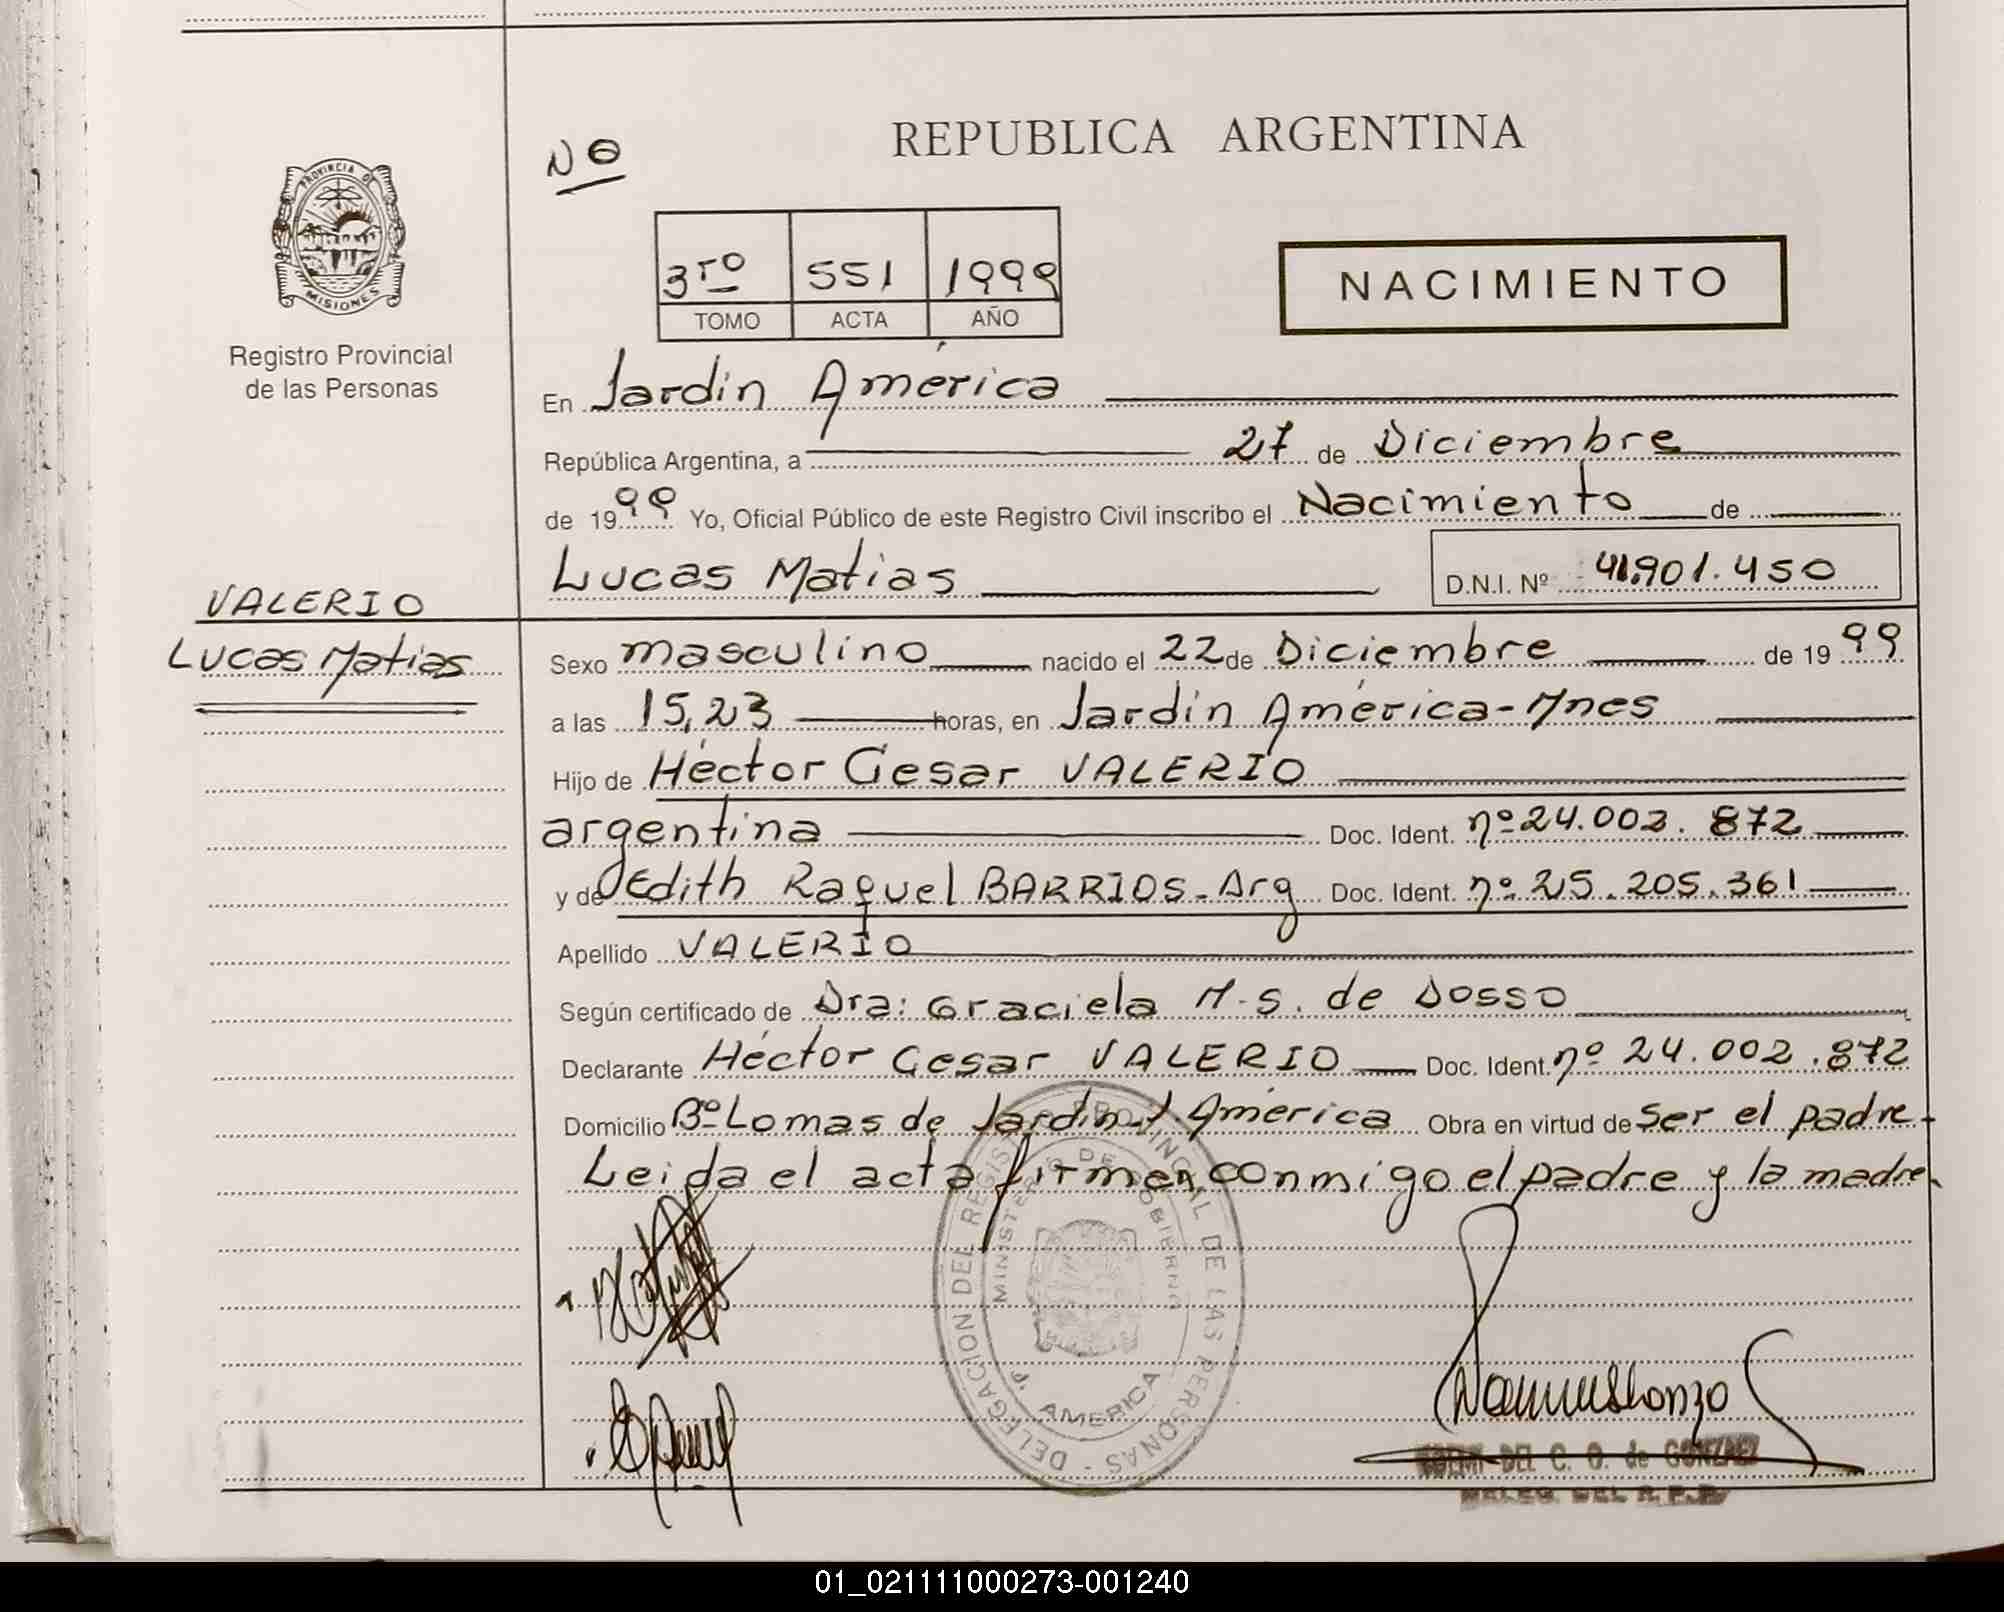 REPUBLICA ARGENTINA
Nº
PROVINCIA DE
MISIONES
Registro Provincial
de las Personas
3ro 551 1999
TOMO ACTA AÑO
NACIMIENTO
En Jardín América
República Argentina, a 27 de Diciembre
de 1999 Yo, Oficial Público de este Registro Civil inscribo el Nacimiento de
Lucas Matias D.N.I. Nº 41.901.450
VALERIO
Lucas Matias
Sexo masculino nacido el 22 de Diciembre de 1999
a las 15,23 horas, en Jardín América-Mnes
Hijo de Héctor Cesar VALERIO
argentina Doc. Ident. nº 24.002.872
y de Edith Raquel BARRIOS-Arg Doc. Ident. nº 25.205.361
Apellido VALERIO
Según certificado de Dra: Graciela M.S. de Dosso
Declarante Héctor Cesar VALERIO Doc. Ident. nº 24.002.872
Domicilio Bº Lomas de Jardín J América Obra en virtud de Ser el padre-
Leida el acta firman conmigo el padre y la madre
DELEGACION DEL REGISTRO PROVINCIAL DE LAS PERSONAS -
MINISTERIO DE GOBIERNO
J. AMERICA
DEL C. O. de GONZALEZ
DEL R.P.P.
01_021111000273-001240